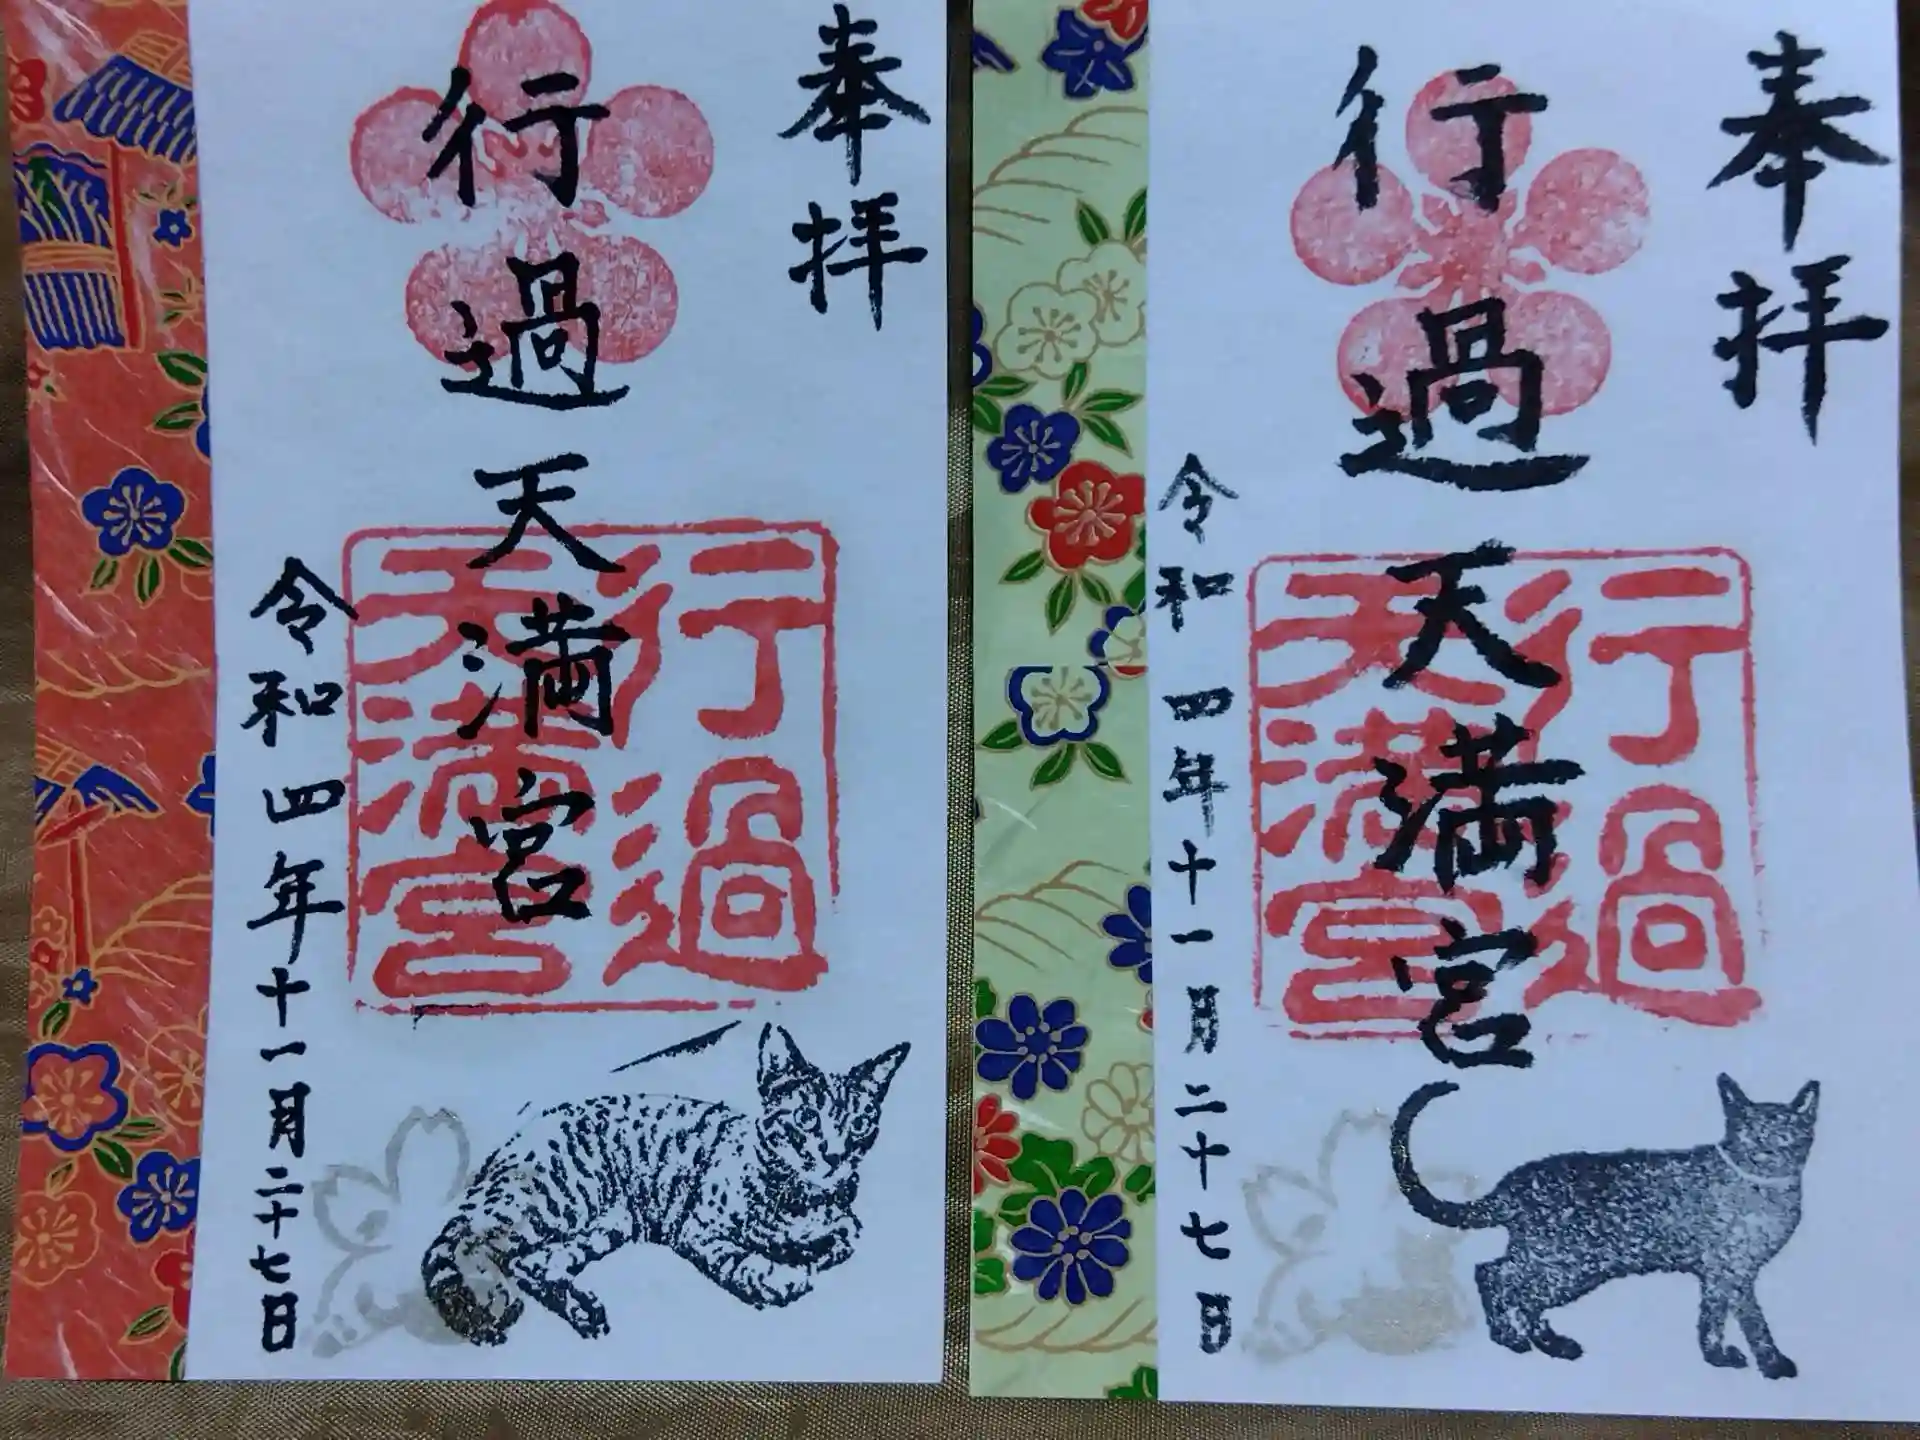 奉拝
行過天満宮
行過天満宮
令和四年十一月二十七日
奉拝
行過天満宮
行過天満宮
令和四年十一月二十七日